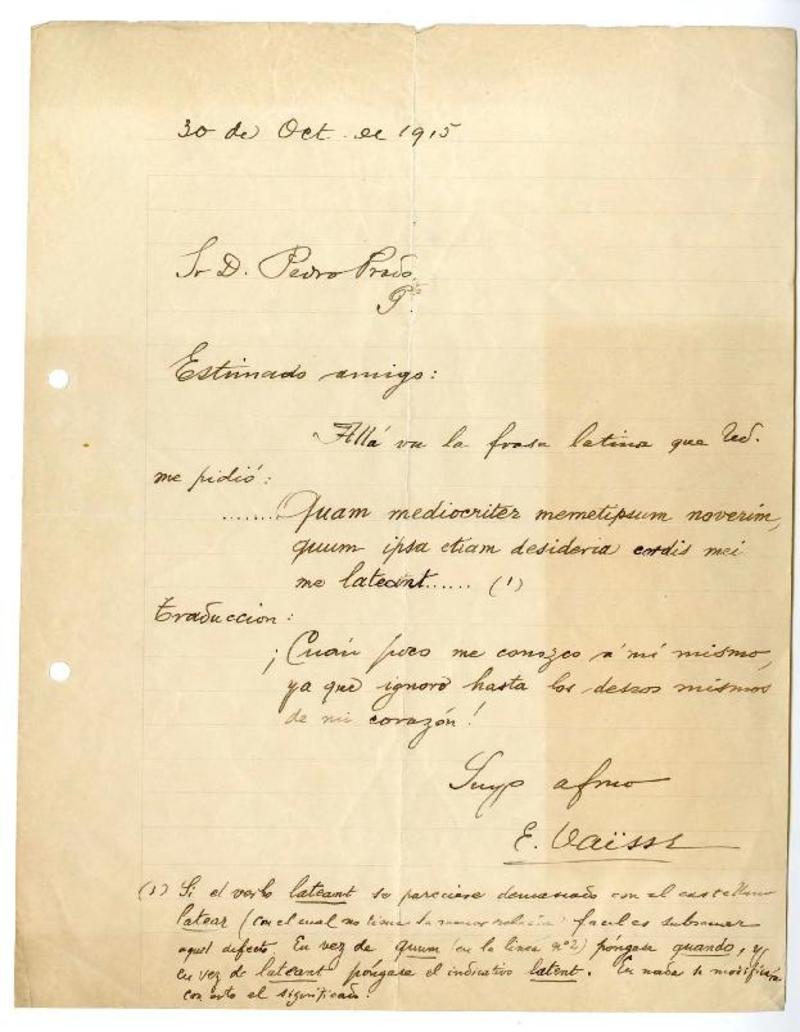 30 de Oct. de 1915
Sr D. Pedro Prado
Pte.
Estimado amigo:
Allá va la frase latina que Ud.
me pidió:
.......Quam mediocriter memetipsum noverim,
quum ipsa etiam desideria cordis mei
me lateant...... (1)
Traduccion:
¡Cuán poco me conozco a mí mismo,
ya que ignoro hasta los deseos mismos
de mi corazón!
Suyo afmo
E. Vaïsse
(1) Si el verbo lateant se pareciese demasiado con el castellano
latear (con el cual no tiene la menor relación) facil es subsanar
aquel defecto En vez de quum (en la linea nº2) póngase quando, y,
en vez de lateant póngase el indicativo latent. En nada se modificará
con esto el significado.